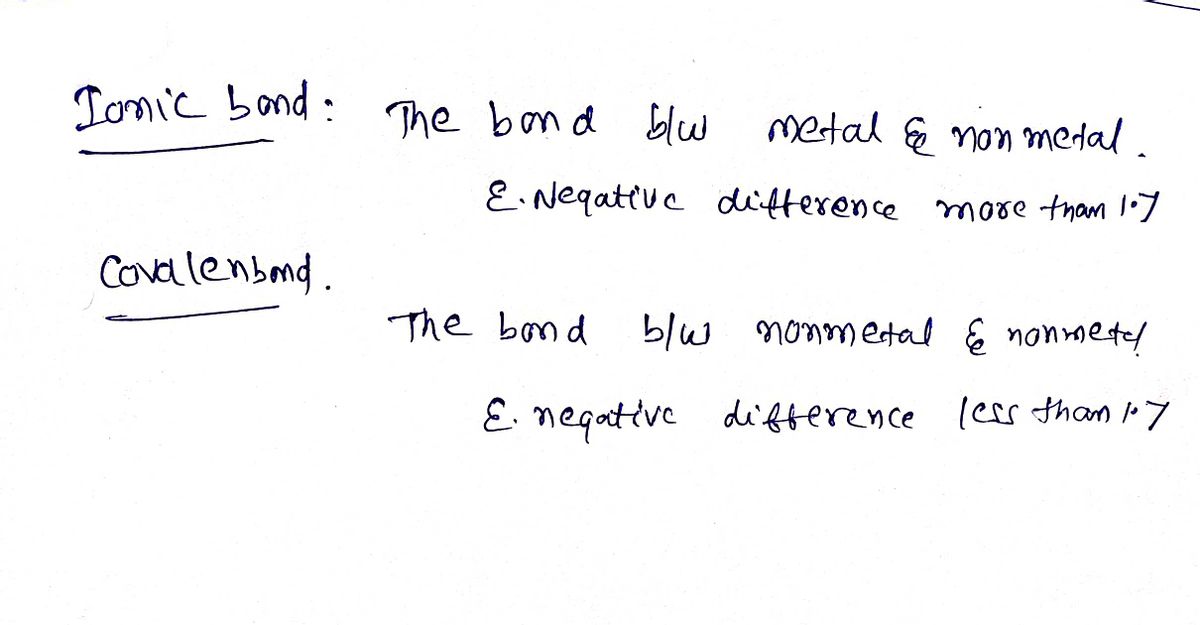 Ionic bond : The bond b/w metal & non metal.
E. Negative difference more than 1.7
Covalenbond.
The bond b/w nonmetal & nonmetal
E. negative difference less than 1.7